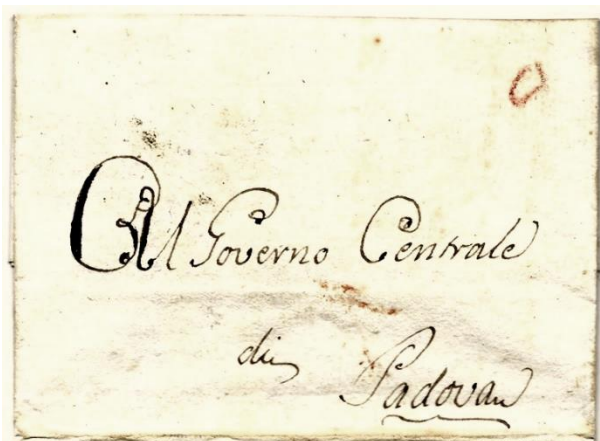 Al Governo Centrale
di
Padova